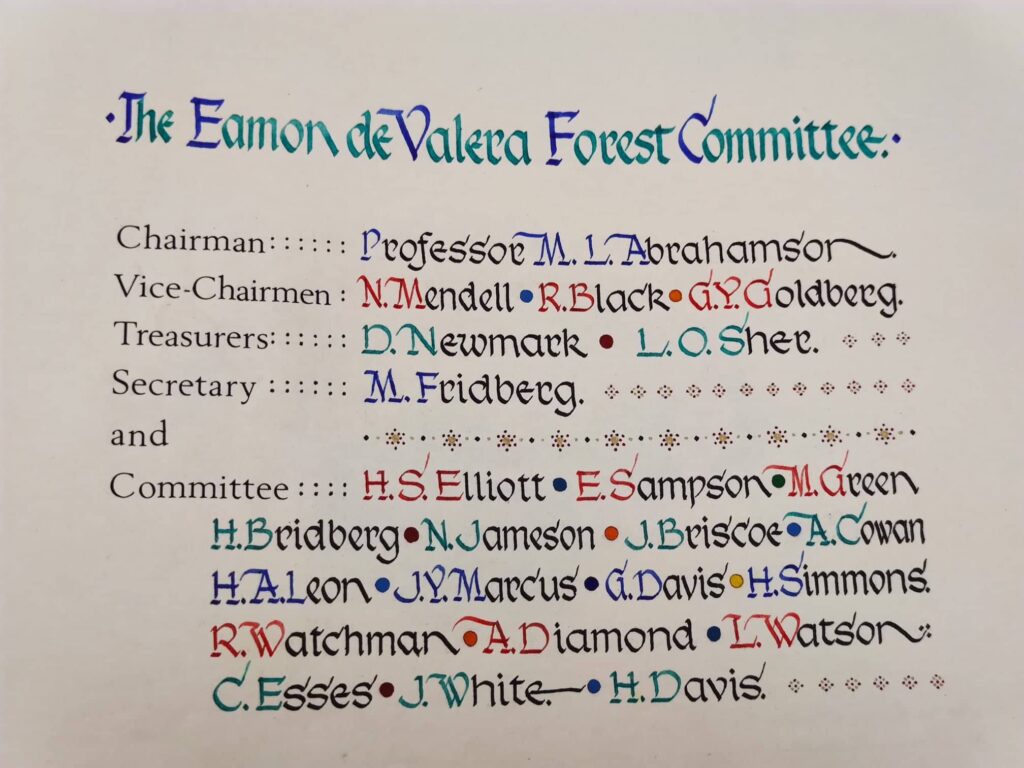 ·The Eamon de Valera Forest Committee.·
Chairman : : : : : : Professor M. L. Abrahamson.
Vice-Chairmen : N. Mendell • R. Black • G.Y. Goldberg.
Treasurers : : : : : : D. Newmark • L. O. Sher.
Secretary : : : : : : M. Fridberg.
and
Committee : : : : H. S. Elliott • E. Sampson • M. Green
H. Bridberg • N. Jameson • J. Briscoe • A. Cowan
H. A. Leon • J. Y. Marcus • G. Davis • H. Simmons.
R. Watchman • A. Diamond • L. Watson
C. Esses • J. White. • H. Davis.